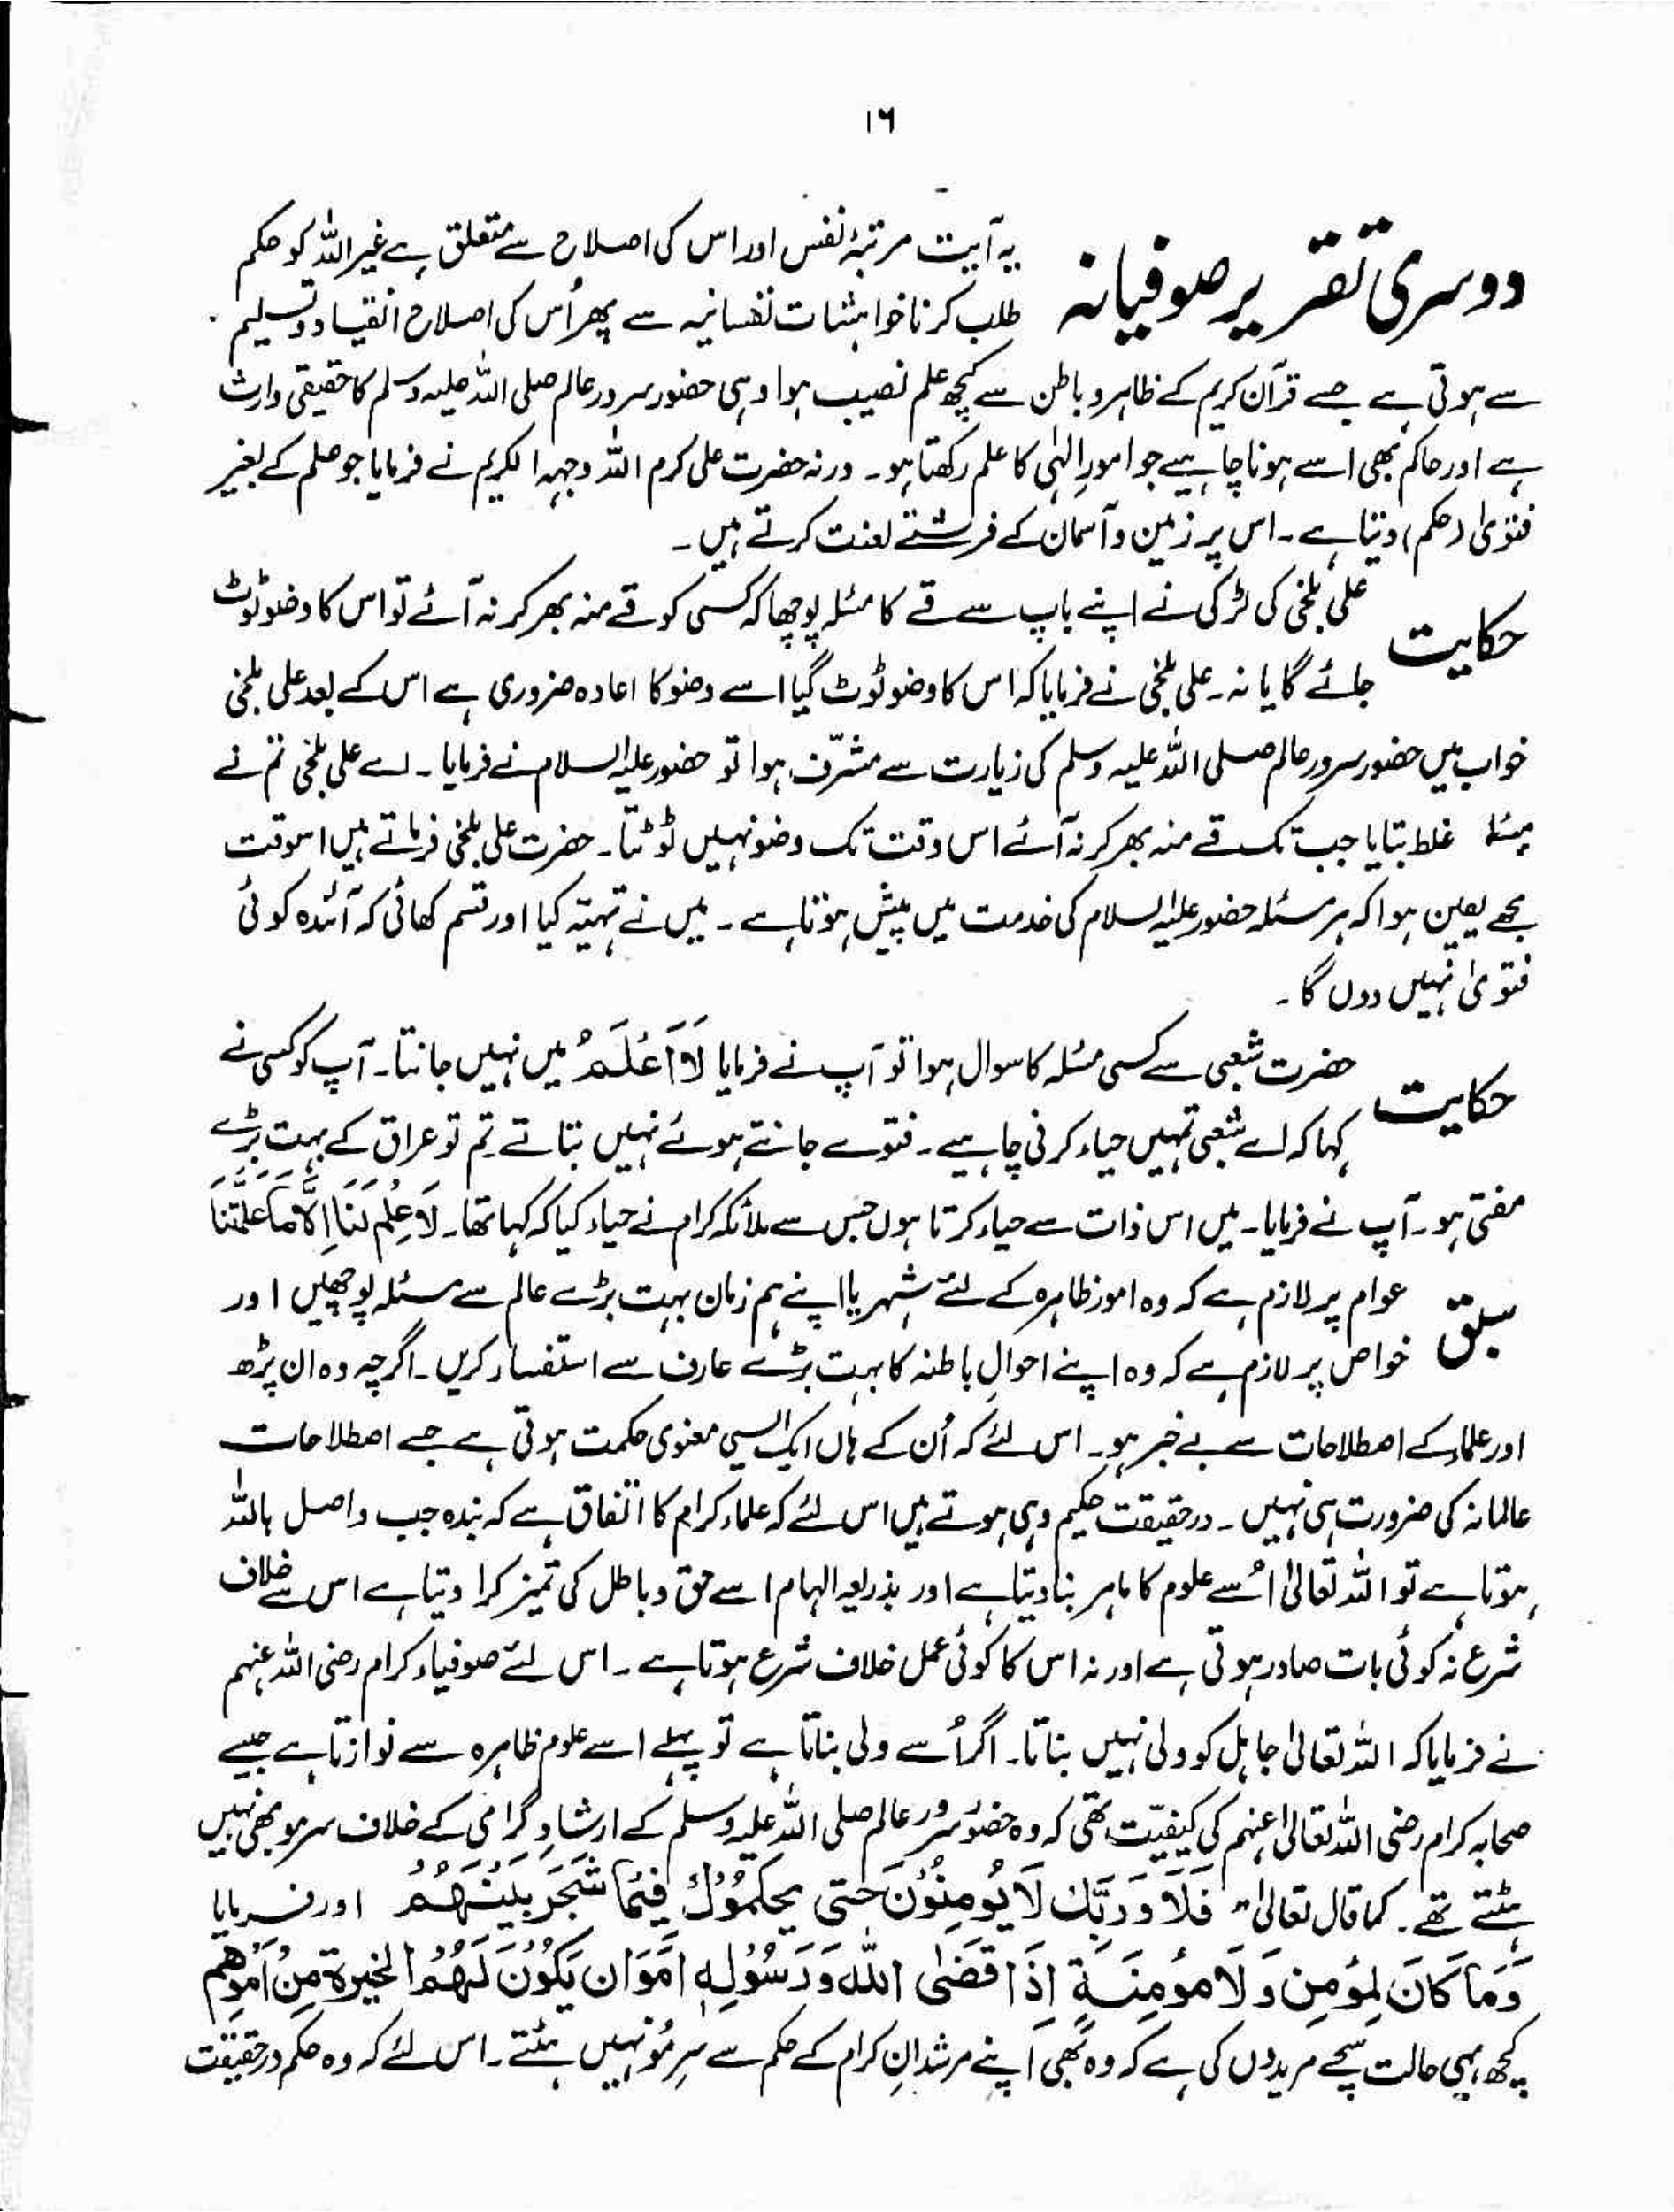 ۱۶
دوسری تقریر صوفیانہ
یہ آیت مرتبۂ نفس اور اس کی اصلاح سے متعلق ہے غیر اللہ کو حکم
طلب کرنا خواہشات نفسانیہ سے پھر اُس کی اصلاح انقیاد و تسلیم
سے ہوتی ہے جسے قرآن کریم کے ظاہر و باطن سے کچھ علم نصیب ہوا وہی حضور سرور عالم صلی اللہ علیہ وسلم کا حقیقی وارث
ہے اور حاکم بھی اسے ہونا چاہیے جو امورِ الہٰی کا علم رکھتا ہو۔ ورنہ حضرت علی کرم اللہ وجہہ الکریم نے فرمایا جو علم کے بغیر
فتویٰ (حکم) دیتا ہے۔ اس پر زمین و آسمان کے فرشتے لعنت کرتے ہیں۔
حکایت
علی بلخی کی لڑکی نے اپنے باپ سے قے کا مسئلہ پوچھا کہ کسی کو قے منہ بھر کر نہ آئے تو اس کا وضو ٹوٹ
جائے گا یا نہ۔ علی بلخی نے فرمایا کہ اس کا وضو ٹوٹ گیا اسے وضو کا اعادہ ضروری ہے اس کے بعد علی بلخی
خواب میں حضور سرور عالم صلی اللہ علیہ وسلم کی زیارت سے مشرّف ہوا تو حضور علیہ السلام نے فرمایا۔ اے علی بلخی تم نے
مسئلہ غلط بتایا جب تک قے منہ بھر کر نہ آئے اس وقت تک وضو نہیں ٹوٹتا۔ حضرت علی بلخی فرماتے ہیں اسوقت
مجھے یقین ہوا کہ ہر مسئلہ حضور علیہ السلام کی خدمت میں پیش ہوتا ہے۔ میں نے تہیّہ کیا اور قسم کھائی کہ آئندہ کوئی
فتویٰ نہیں دوں گا۔
حکایت
حضرت شعبی سے کسی مسئلہ کا سوال ہوا تو آپ نے فرمایا لَا اَعْلَمُ میں نہیں جانتا۔ آپ کو کسی نے
کہا کہ اے شعبی تمہیں حیاء کرنی چاہیے۔ فتوے جانتے ہوئے نہیں بتاتے تم تو عراق کے بہت بڑے
مفتی ہو۔ آپ نے فرمایا۔ میں اس ذات سے حیاء کرتا ہوں جس سے ملائکہ کرام نے حیاء کیا کہ کہا تھا۔ لَا عِلْمَ لَنَا اِلَّا مَا عَلَّمْتَنَا
سبق
عوام پر لازم ہے کہ وہ امور ظاہرہ کے لئے شہر یا اپنے ہم زمان بہت بڑے عالم سے مسئلہ پوچھیں اور
خواص پر لازم ہے کہ وہ اپنے احوالِ باطنہ کا بہت بڑے عارف سے استفسار کریں۔ اگرچہ وہ ان پڑھ
اور علماء کے اصطلاحات سے بے خبر ہو۔ اس لئے کہ اُن کے ہاں ایک ایسی معنوی حکمت ہوتی ہے جسے اصطلاحات
عالمانہ کی ضرورت ہی نہیں۔ درحقیقت حکیم وہی ہوتے ہیں اس لئے کہ علماء کرام کا اتفاق ہے کہ بندہ جب واصل باللہ
ہوتا ہے تو اللہ تعالیٰ اُسے علوم کا ماہر بنا دیتا ہے اور بذریعہ الہام اسے حق و باطل کی تمیز کرا دیتا ہے اس سے خلاف
شرع نہ کوئی بات صادر ہوتی ہے اور نہ اس کا کوئی عمل خلاف شرع ہوتا ہے۔ اس لئے صوفیاء کرام رضی اللہ عنہم
نے فرمایا کہ اللہ تعالیٰ جاہل کو ولی نہیں بناتا۔ اگر اُسے ولی بناتا ہے تو پہلے اسے علوم ظاہرہ سے نوازتا ہے جیسے
صحابہ کرام رضی اللہ تعالیٰ عنہم کی کیفیّت تھی کہ وہ حضور سرور عالم صلی اللہ علیہ وسلم کے ارشادِ گرامی کے خلاف سر مو بھی نہیں
ہٹتے تھے۔ کما قال تعالیٰ" فَلَا وَرَبِّكَ لَا يُومِنُوْنَ حَتى يحكمُوْكَ فِيْمَا شَجَرَ بَيْنَهُمْ اور فرمایا
وَمَا كَانَ لِمُؤمِن وَلَا مؤمِنَةٍ إِذَا قَضَى اللهُ وَرَسُوْلُهٗ امْرًا ان يَكُوْنَ لَهُمُ الخيرة مِنْ اَمْرِهِمْ
کچھ یہی حالت سچے مریدوں کی ہے کہ وہ بھی اپنے مرشدانِ کرام کے حکم سے سرِ مُو نہیں ہٹتے۔ اس لئے کہ وہ حکم درحقیقت